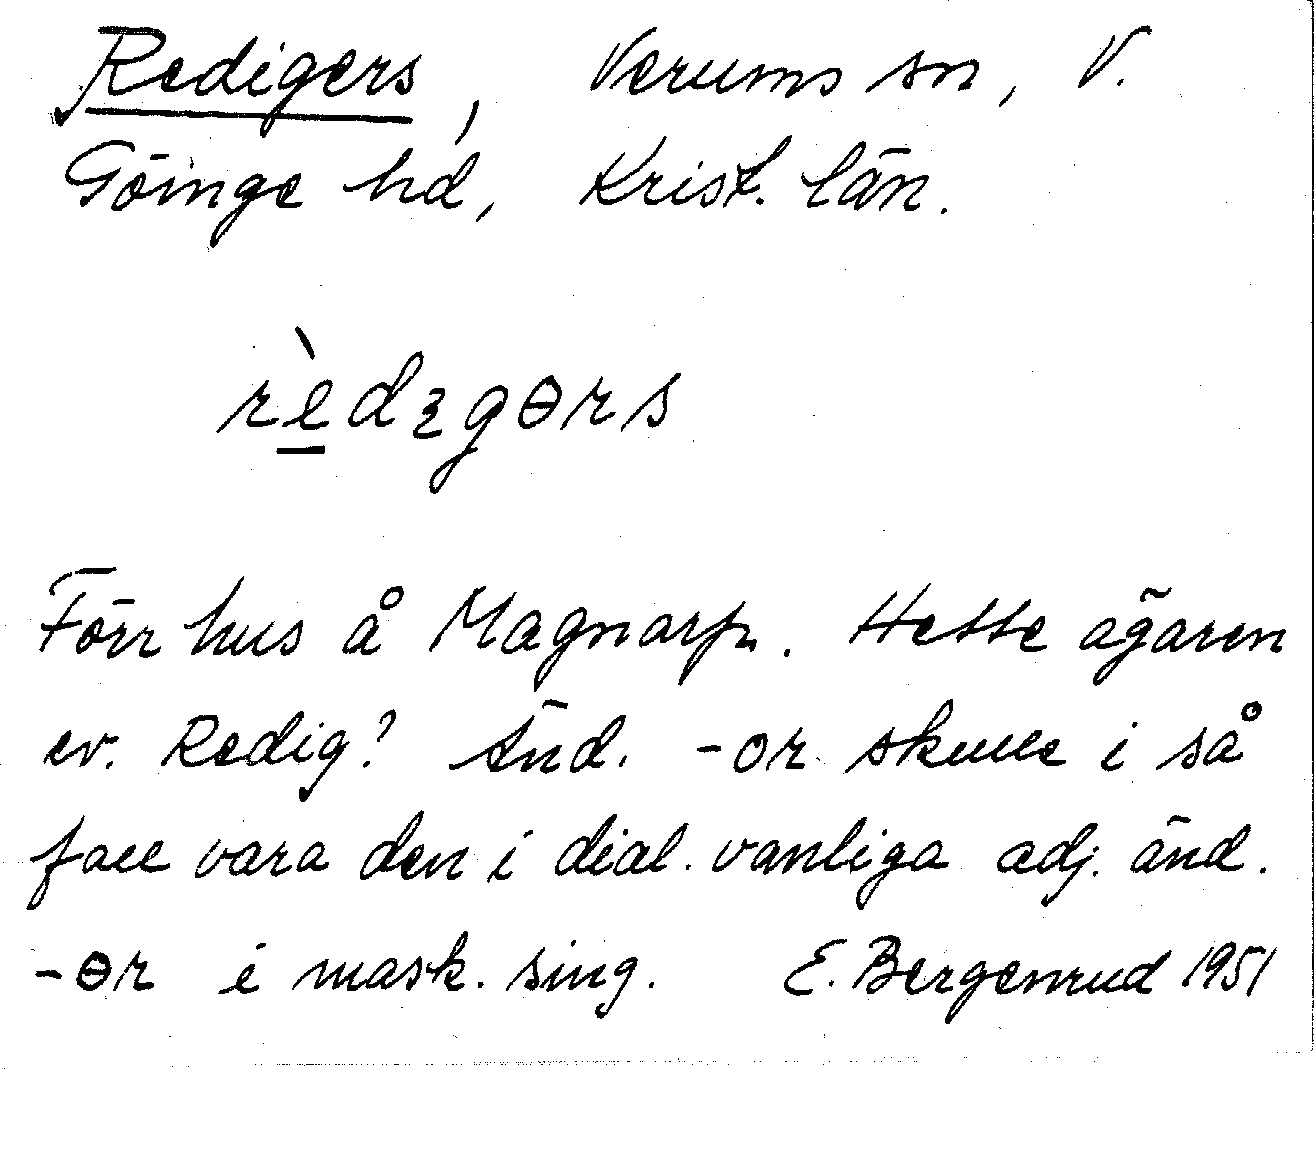 Redigers, Verums sn, V.
Göinge hd, Krist. län.
rèdɿgɵrs
Förr hus å Magnarp. Hette ägaren
ev. Redig? Änd. -or skulle i så
fall vara den i dial. vanliga adj. änd.
-ɵr i mask. sing. E. Bergenrud 1951